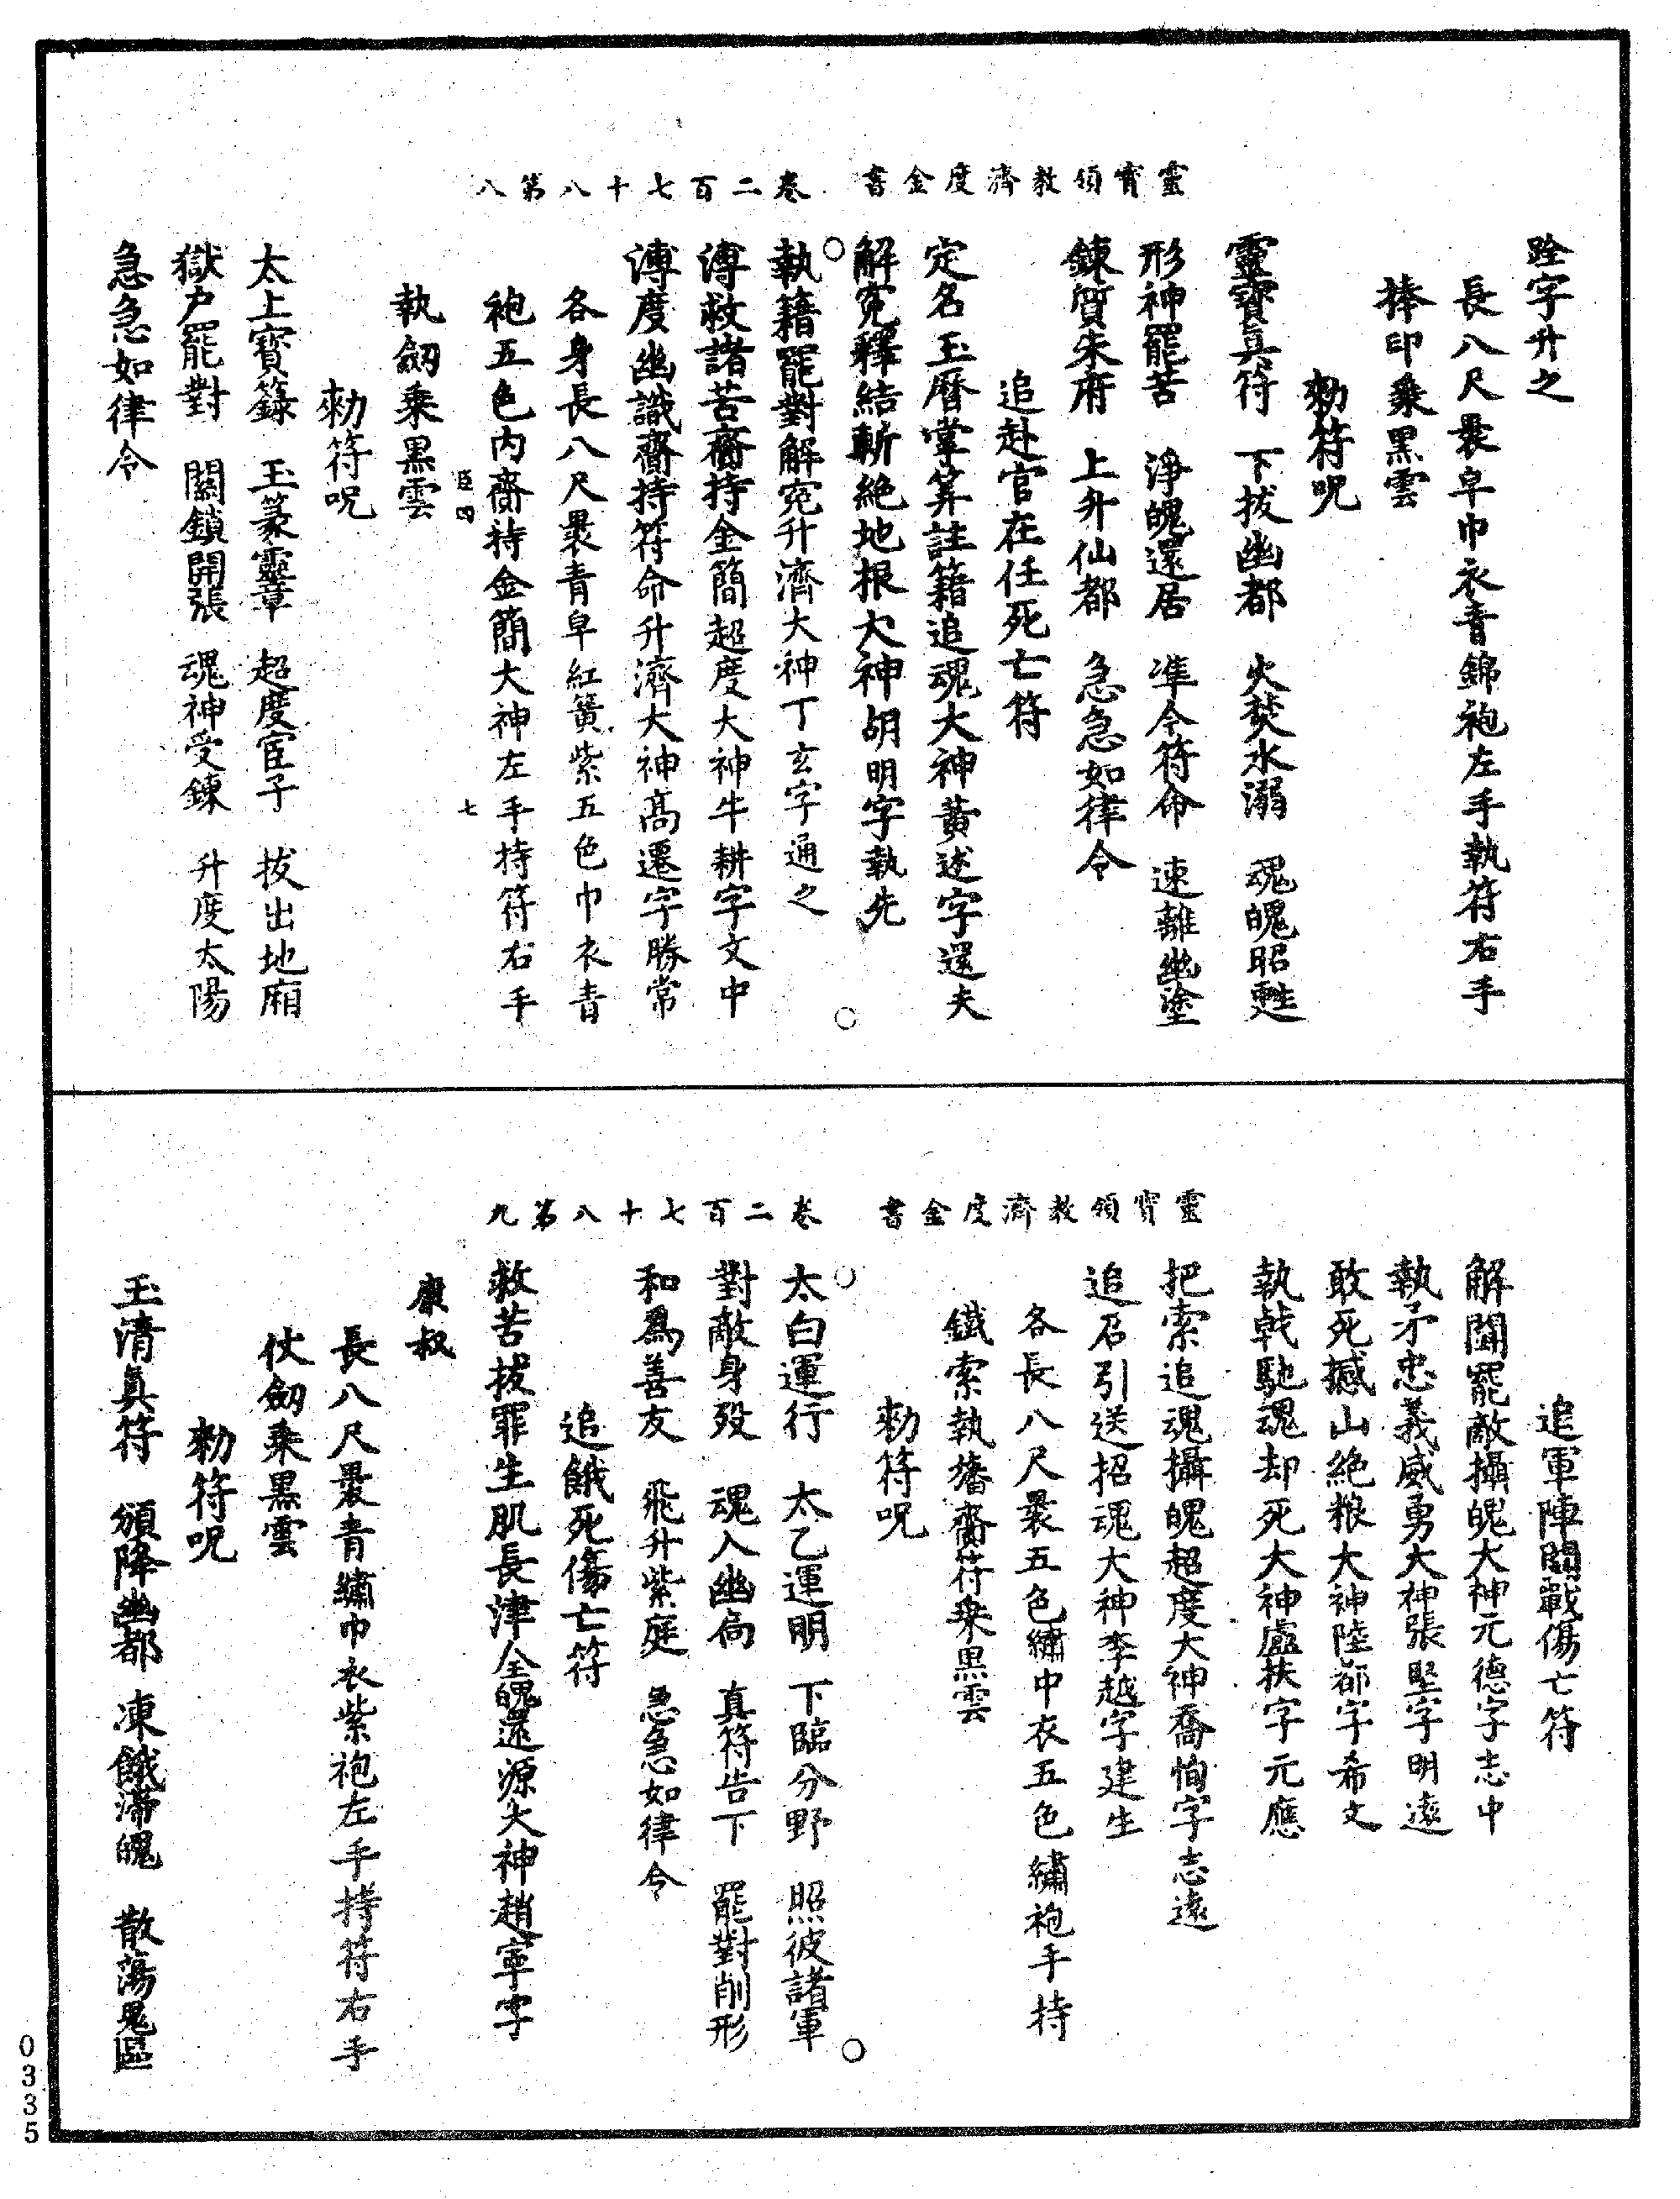 靈寶領教濟度金書　卷二百七十八第八
跧字升之
長八尺褁皁巾衣青錦袍左手執符右手
捧印乗黑雲
勑符呪
靈寶真符　下拔幽都　火焚水溺　魂魄昭甦
形神罷苦　淨魄還居　凖令符命　速離幽塗
鍊質朱府　上升仙都　急急如律令
追赴官在任死亡符
定名玉曆掌筭註籍追魂大神黃述字還夫
解寃釋結斬絶地根大神胡明字執先
執籍罷對解寃升濟大神丁玄字通之
溥救諸苦齎持金簡超度大神牛耕字文中
溥度幽識齎持符命升濟大神高遷字勝常
各身長八尺褁青皁紅簧紫五色巾衣青
袍五色内齎持金簡大神左手持符右手
臣四　七
執劒乗黑雲
勑符呪
太上寳籙　玉篆靈章　超度宦子　拔出地廂
獄户罷對　關鎖開張　魂神受鍊　升度太陽
急急如律令
靈寳領教濟度金書　卷二百七十八第九
追軍陣鬭戰傷亡符
解鬭罷敵攝魄大神元德字志中
執矛忠義威勇大神張堅字明遠
敢死撼山絶粮大神陸都字希文
執戟馳魂却死大神盧扶字元應
把索追魂攝魄超度大神喬恂字志遠
追召引送招魂大神李越字建生
各長八尺褁五色繡巾衣五色繡袍手持
鐵索執旛齎符乗黑雲
勑符呪
太白運行　太乙運明　下臨分野　照彼諸軍
對敵身殁　魂入幽局　真符告下　罷對削形
和爲善友　飛升紫庭　急急如律令
追餓死傷亡符
救苦拔罪生肌長津全魄還源大神趙寕字
康叔
長八尺褁青繡巾衣紫袍左手持符右手
仗劒乗黒雲
勑符呪
玉清真符　頒降幽都　凍餓滯魄　散蕩鬼區
0335